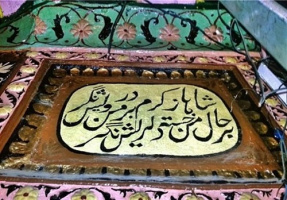 شاہا ز کرم بر من درویش نگر
بر حال من خستہ و دلریش نگر